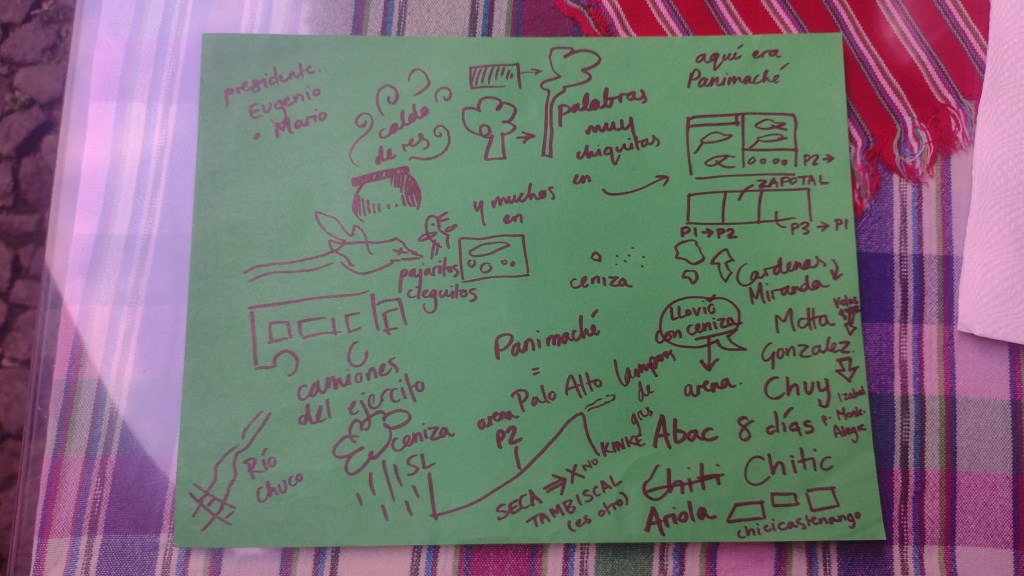 presidente.
Eugenio
• Mario
caldo
de res
palabras
muy
chiquitas
en
aquí era
Panimaché
P2→
ZAPOTAL
P1→P2
P3→P1
y muchos
en
pajaritos
cieguitos
ceniza
Cardenas
Miranda
Llovió
con ceniza
arena.
Motta
Gonzalez
Chuy
Izabal
Monte-
Alegre
camiones
del ejercito
Panimaché
=
Palo Alto
lampara
de
gas
KINKE
arena
P2
ceniza
SL
Río
Chuco
SECA ⇒ X NO
TAMBISCAL
(es otro)
Abac 8 días
Chiti Chitic
Ariola
chicicastenango